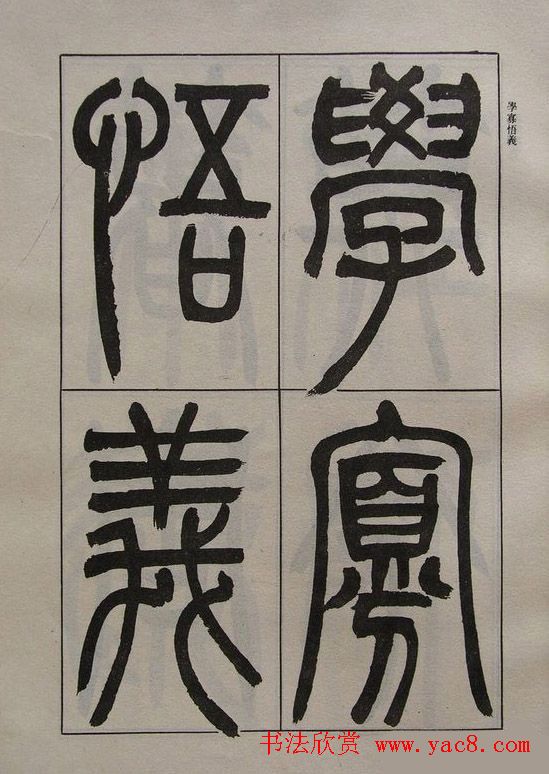 學寡
悟義
學寡悟義
书法欣赏 www.yac8.com